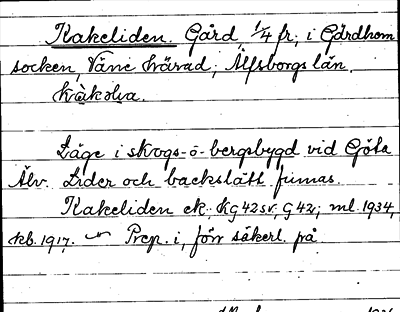 Kakeliden. Gård, 1/4 fr, i Gärdhem
socken, Väne härad, Älfsborgs län.
Läge i skogs- o- bergsbygd vid Göta
Älv. Lider och backslätt finnas.
Kakeliden ek. KG42sv, G42; ml. 1934,
kb. 1917. Prep. i, förr säkerl. på